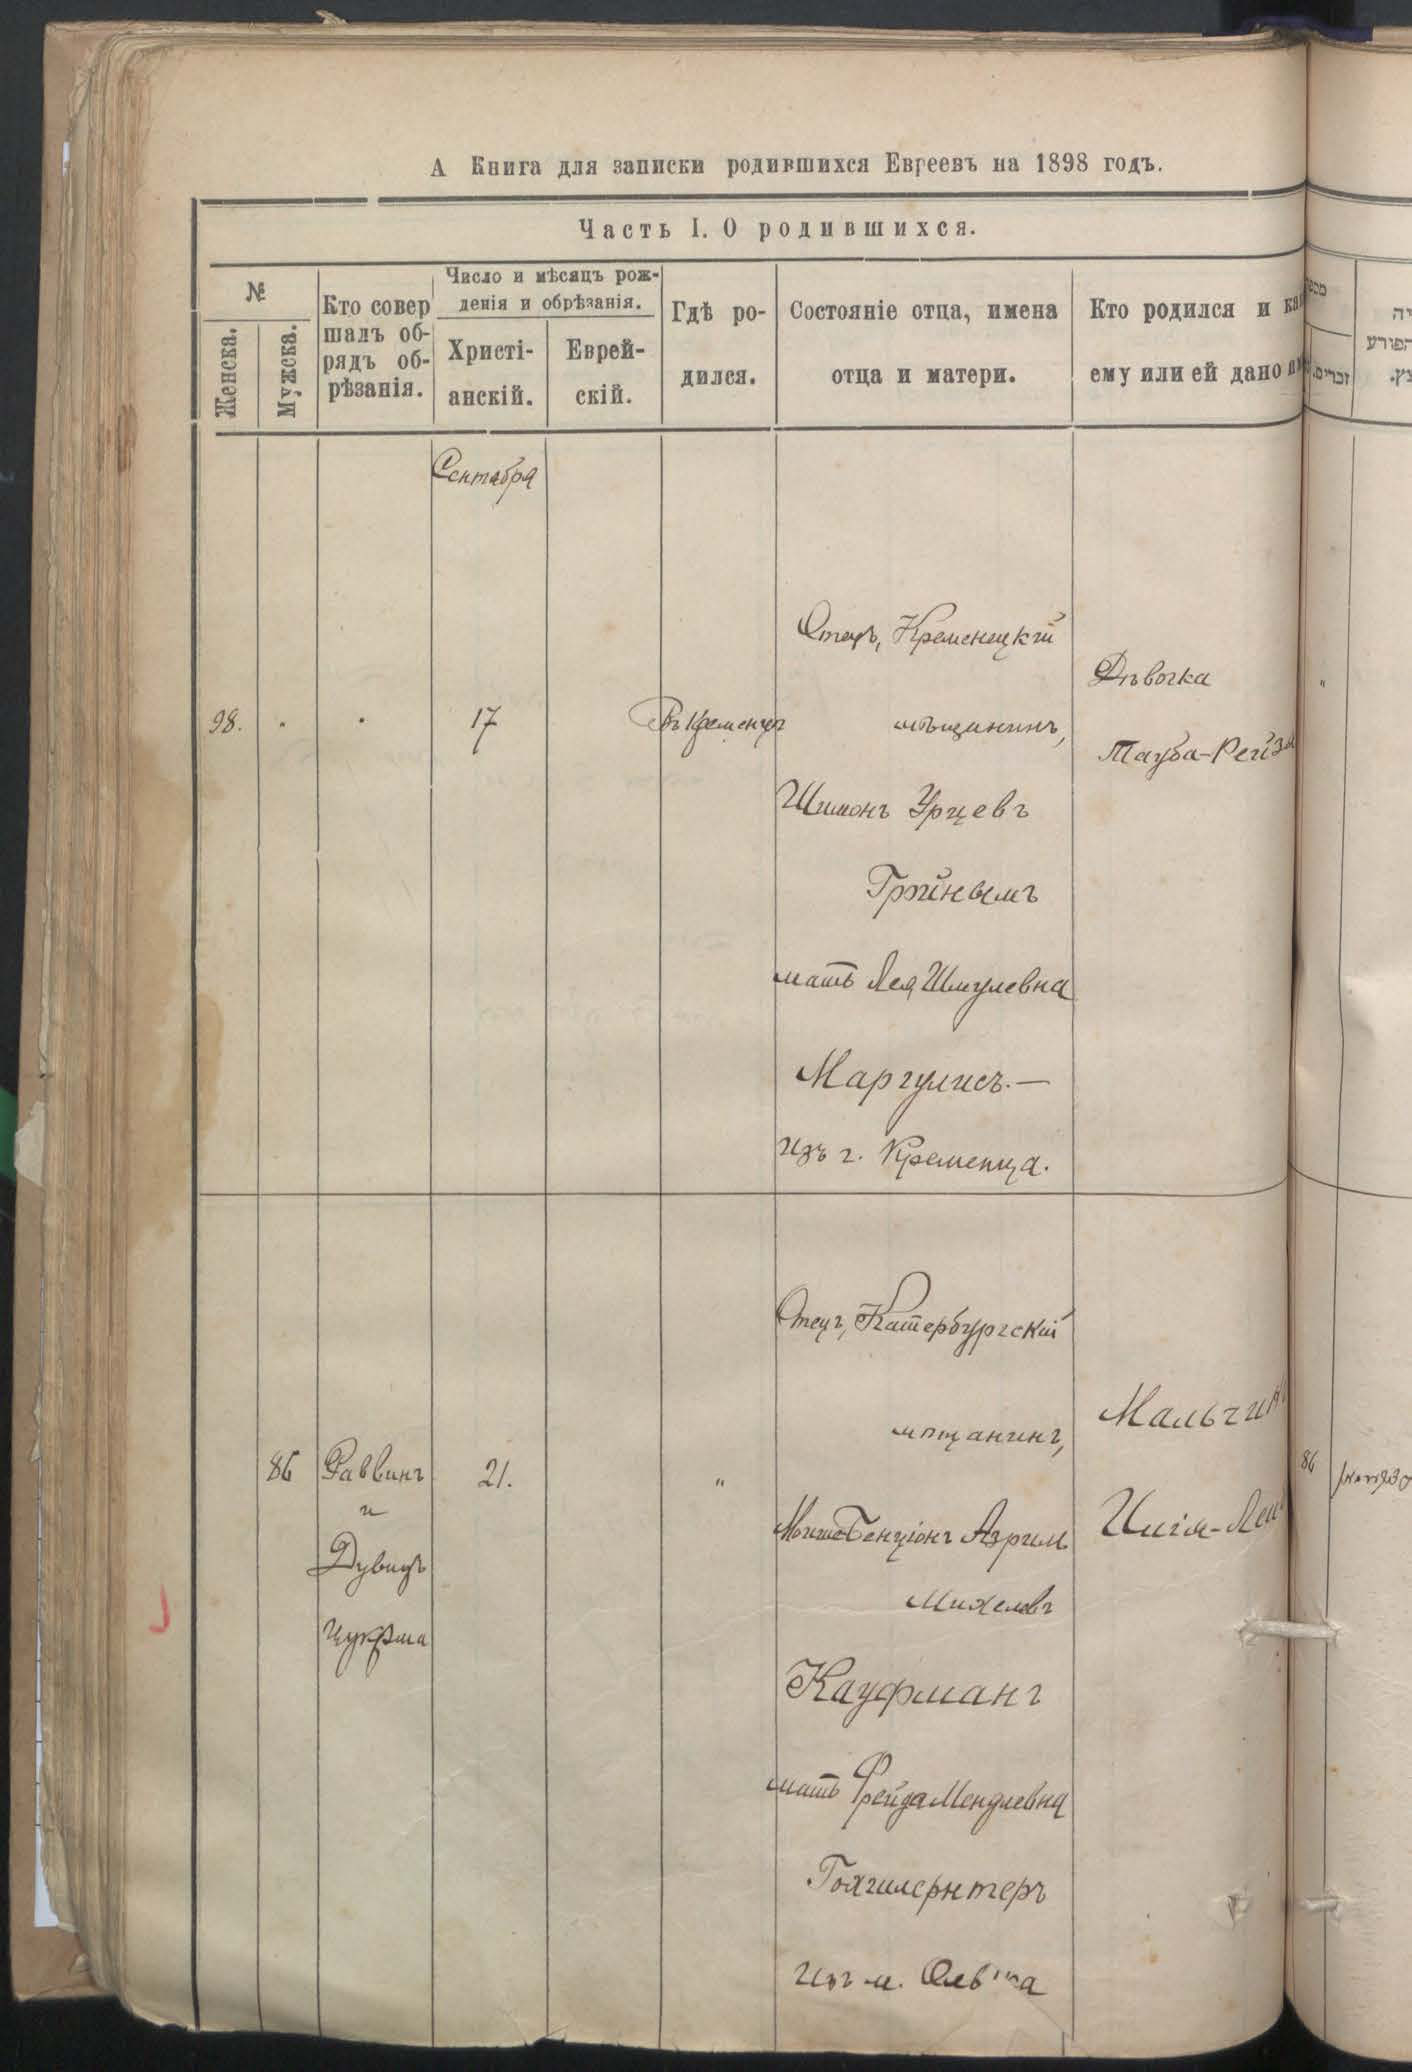 А Книга для записки родившихся Евреевъ на 1898 годъ.
Часть I. О родившихся.
№
Женска.
Мужска.
Кто совер
шалъ об-
рядъ об-
рѣзанія.
Число и мѣсяцъ рож-
денія и обрѣзанія.
Христі-
анскій.
Еврей-
скій.
Гдѣ ро-
дился.
Состояніе отца, имена
отца и матери.
Кто родился и
ему или ей дано
Сентября
98.
17
Въ Кременцѣ
Отецъ, Кременецкій
мѣщанинъ,
Шимонъ Урцевъ
мать Лея Шмулевна
Маргулисъ.—
изъ г. Кременца.
Дѣвочка
Тауба-Рейза
86
Раввинъ
и
Дувидъ
21.
"
Отецъ, Катербургскій
мѣщанинъ,
Бенціонъ
Михелевъ
Кауфманъ
мать Фрейда Менделевна
Гохгилернтеръ
изъ м.
86
זכרים.
הפורע